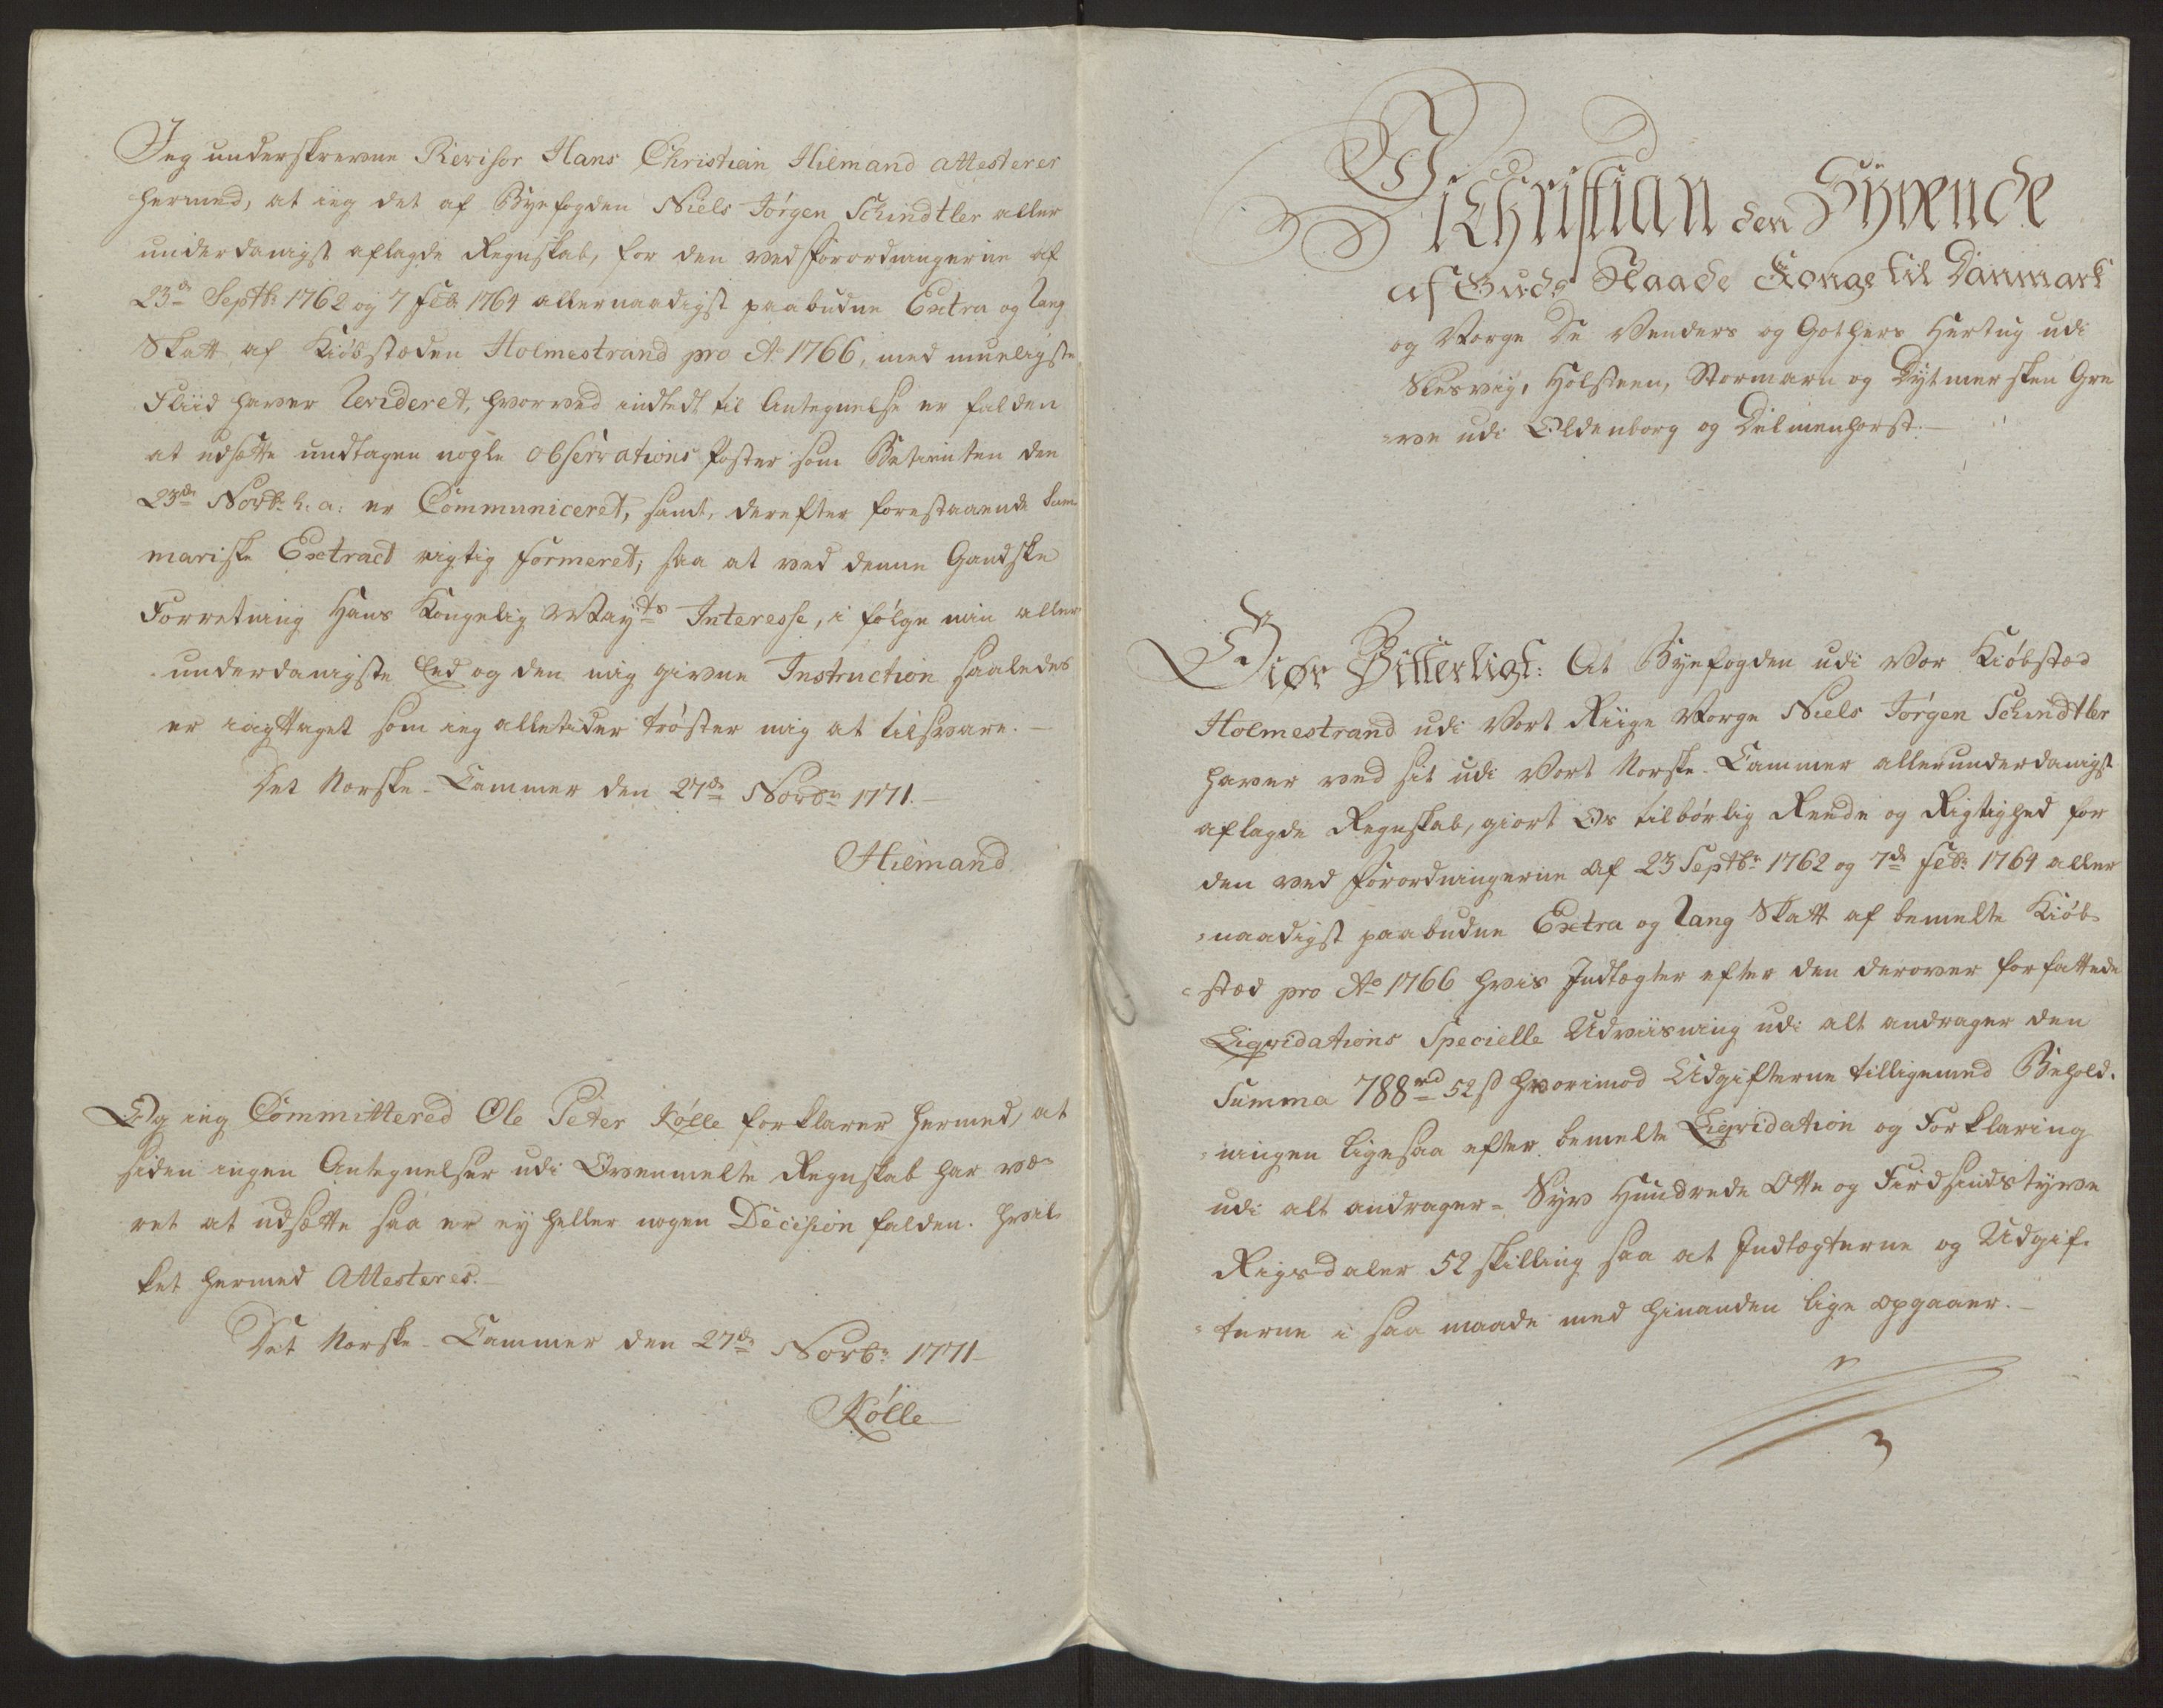 Jeg underskrevne Revisor Hans Christian Hiemand attesterer
hermed, at ieg det af Byefogden Niels Jørgen Schindtler aller
underdanigst aflagde Regnskab, for den ved Forordningerne af
23de Septbr 1762 og 7 Febr 1764 allernaadigst paabudne Extra og Rang
Skatt af Kiøbstæden Holmestrand pro Ao 1766, med mueligste
Fliid haver revideret, hvorved indtedt til Antegnelse er falden
at udsætte undtagen nogle observations Poster som Betienten den
23de Novbr h: a: er Communiceret, samt, derefter forestaaende Sum
mariske Extract rigtig formeret, saa at ved denne Gandske
Forretning Hans Kongelig Mayts Interesse, i følge min aller
underdanigste Eed og den mig givne Instruction saaledes
er iagttaget som ieg alletider trøster mig at tilsvare.
Det Norske-Cammer den 27de Novbr 1771.
Hiemand
Og ieg Committered Ole Peter Kølle forklarer hermed, at
siden ingen Antegnelser udi Ovenmelte Regnskab har væ-
ret at udsætte saa er ey heller nogen Decision falden. hvil-
ket hermed Attesteres.
Det Norske-Cammer den 27de Novbr 1771
Kølle
Vi Christian den Syvende
af Guds Naade Konge til Danmark
og Norge De Venders og Gothers Hertug udi
Slesvig, Holsteen, Stormarn og Dytmersken Gre
=ve udi Oldenborg og Delmenhorst.
Giør Vitterligt: At Byefogden udi Vor Kiøbstæd
Holmestrand udi Vort Riige Norge Niels Jørgen Schindtler
haver ved sit udi Vort Norske-Cammer allerunderdanigst
aflagde Regnskab, giort Os tilbørlig Reede og Rigtighed for
den ved Forordningerne af 23 Septbr 1762 og 7de Febr 1764 aller
=naadigst paabudne Extra og Rang Skatt af bemelte Kiøb-
=stæd pro Ao 1766 hvis Indtægter efter den derover forfattede
Liqvidations Specielle Udviisning udi alt andrager den
Summa 788rd 52ß hvorimod Udgifterne tilligemed Behold-
=ningen ligesaa efter bemelte Liqvidation og Forklaring
udi alt andrager= Syv Hundrede Otte og Firdsindstyve
Rigsdaler 52 skilling saa at Indtægterne og Udgif-
=terne i saa maade med hinanden lige opgaaer.